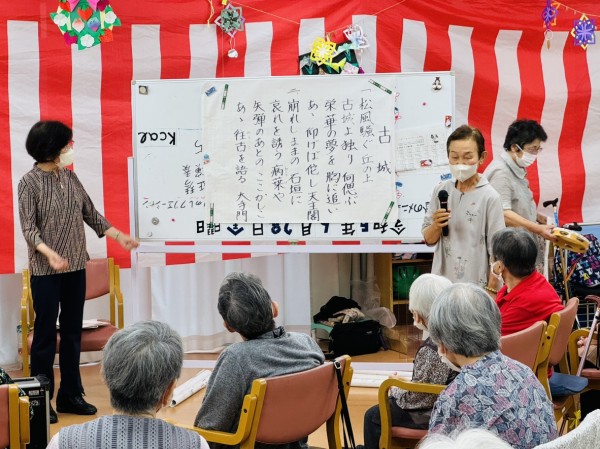 古城
一 松風騒ぐ 丘の上
古城よ独り 何偲ぶ
栄華の夢を 胸に追い
あゝ 仰げば侘し 天主閣
二 崩れしままの 石垣に
哀れを誘う 病葉や
矢弾のあとの ここかしこ
あゝ 往古を語る 大手門
Kcal
28日金曜日